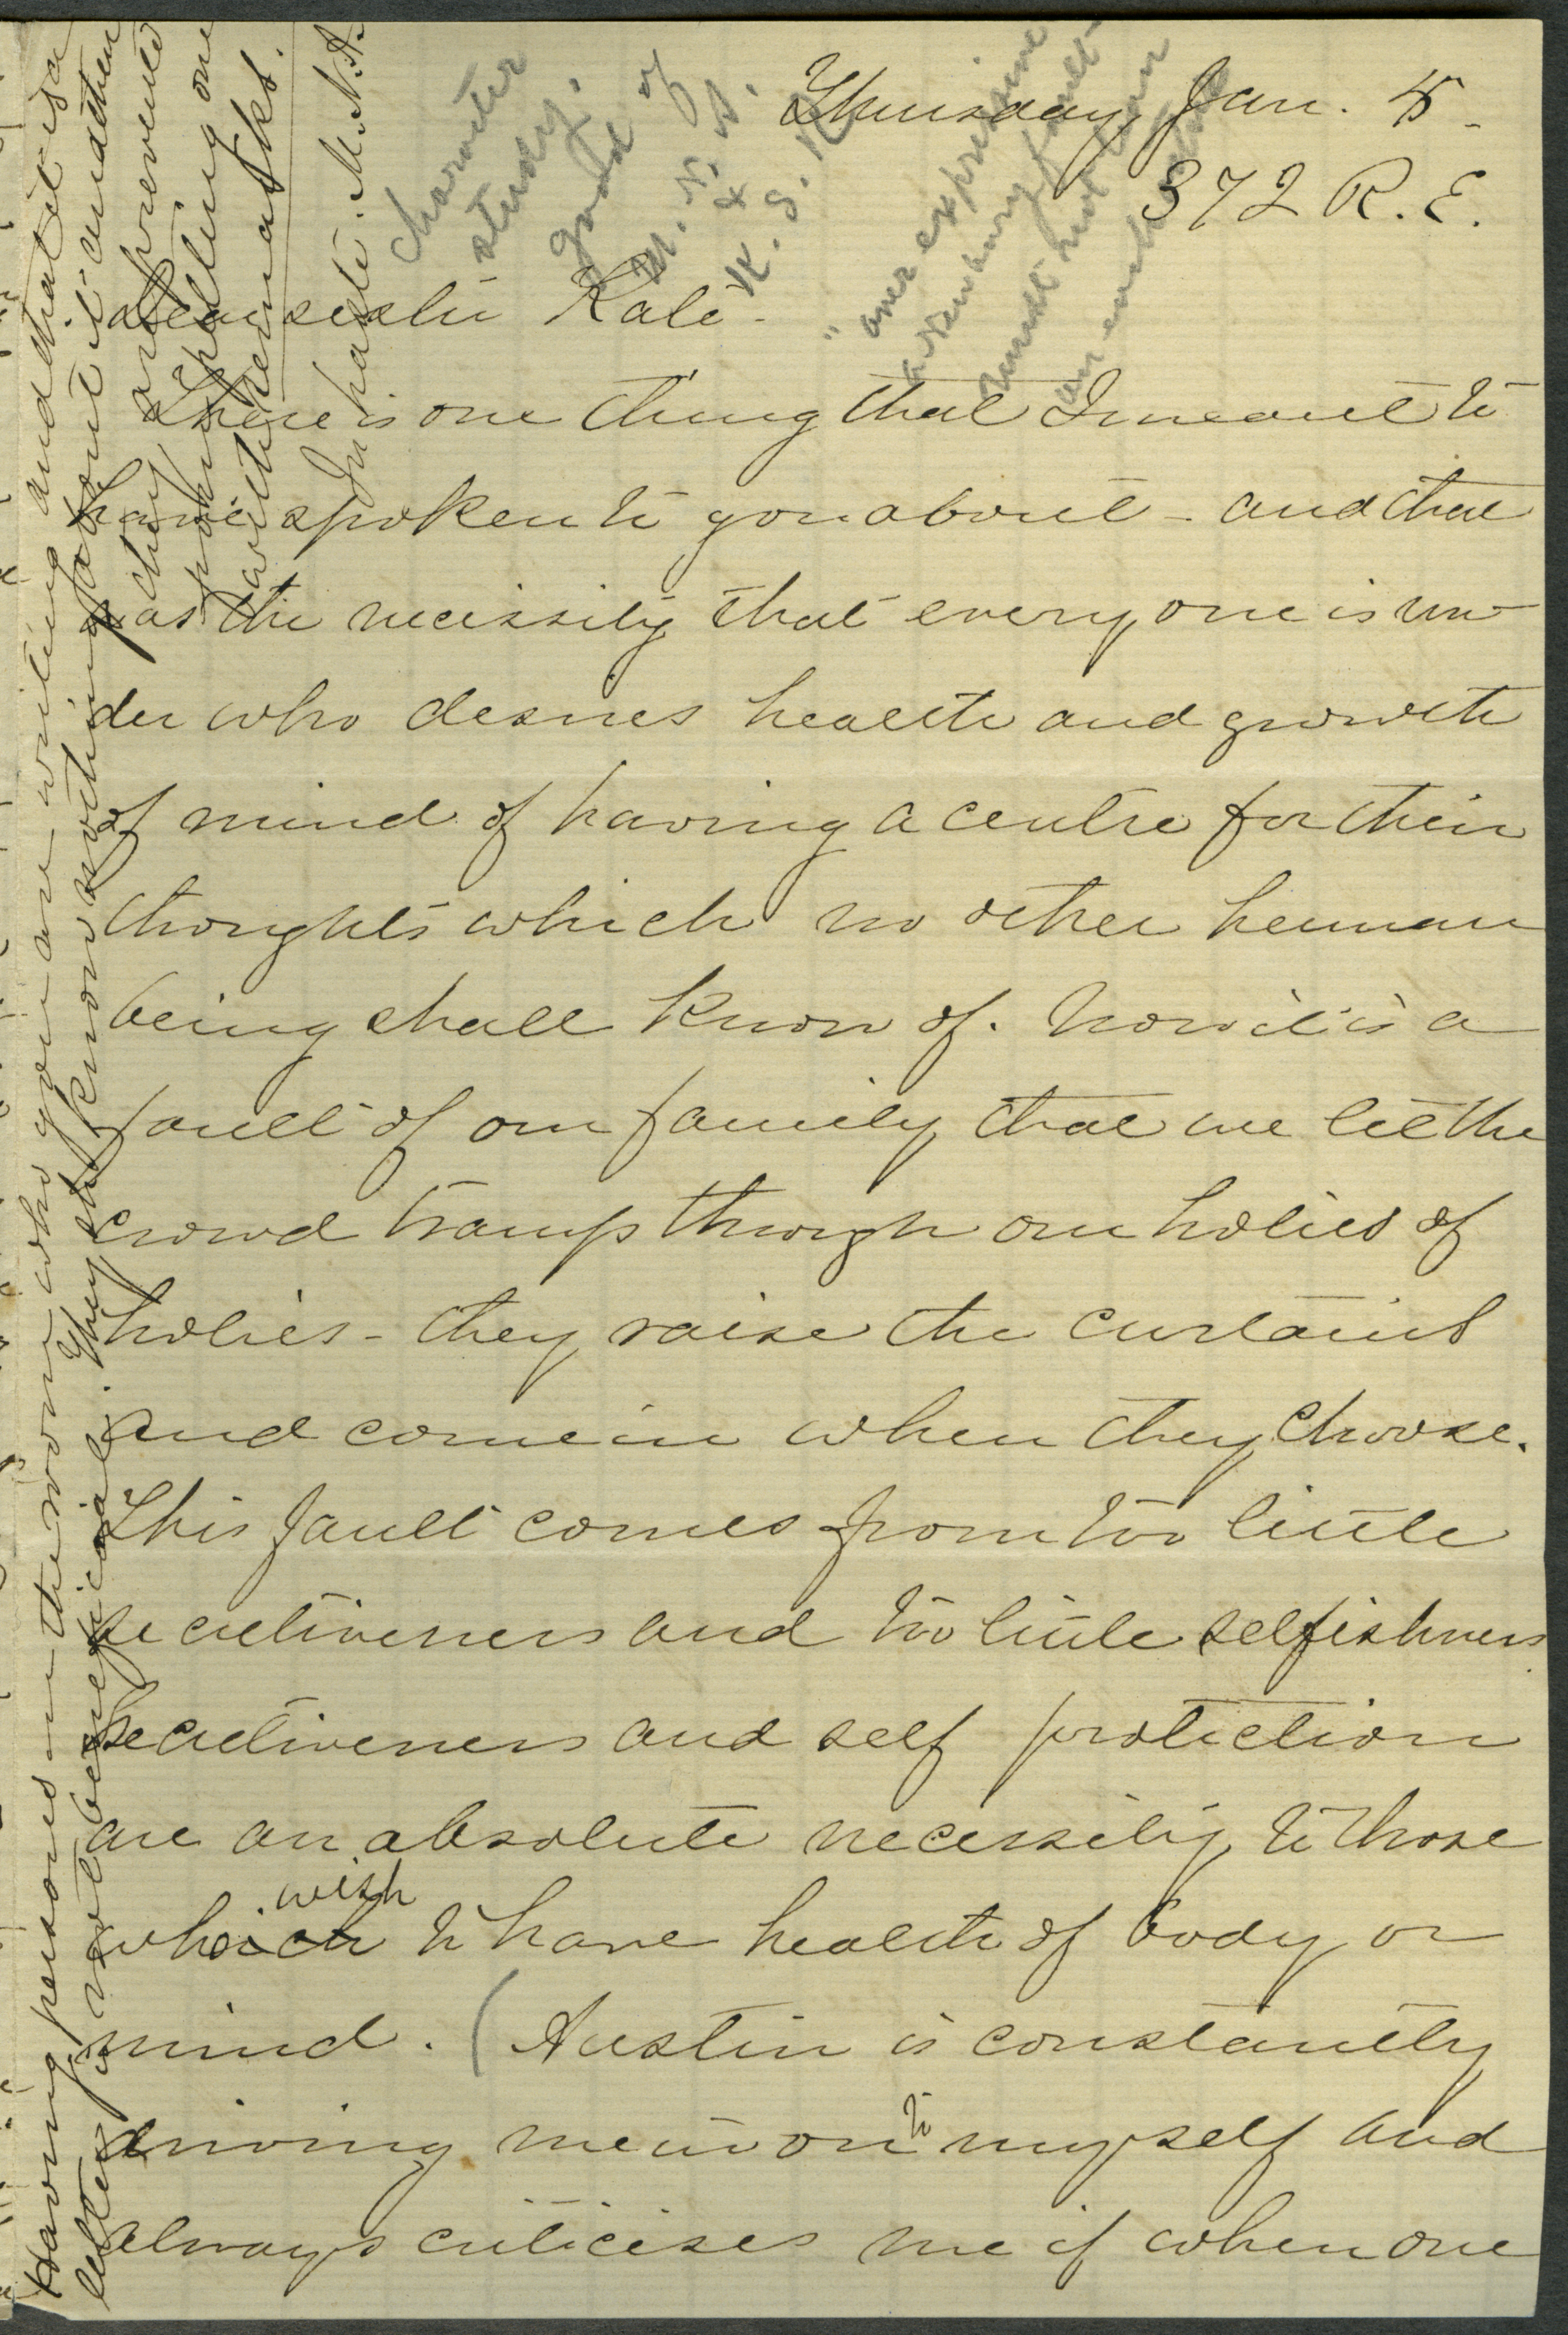 Thursday, Jan. 5 -
372 R. E.
Dear sister Kate -
There is one thing that I meant to
have spoken to you about - and that
was the necissity that every one is un-
der who desires health and growth
of mind of having a centre for their
thoughts which no other human
being shall know of. Now it is a
fault of our family that we let the
crowd tramp through our holies of
holies - they raise the curtains
and come in when they choose.
This fault comes from too little
secretiveness and too little selfishness
Secretiveness and self protection
are an absolute necessity to those
who wish to have health of body or
mind. (Austin is constantly
driving me in on to myself and
always criticises me if when one
Having persons in the room who you are writing and that it is a
letter is not beneficial. They sh know nothing about it and then
they are prevented
probing one
with remarks.
In haste. M. N. A.
character
study.
good of
M. N. A.
&
K. S. N.
"over expressive
a Newbury fault -
must not